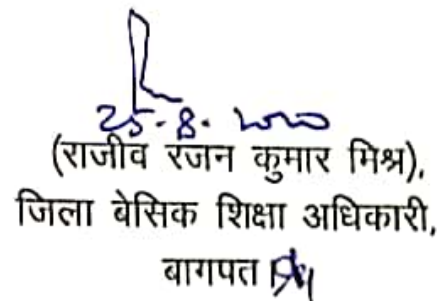 25-8-2020
(राजीव रंजन कुमार मिश्र),
जिला बेसिक शिक्षा अधिकारी,
बागपत।